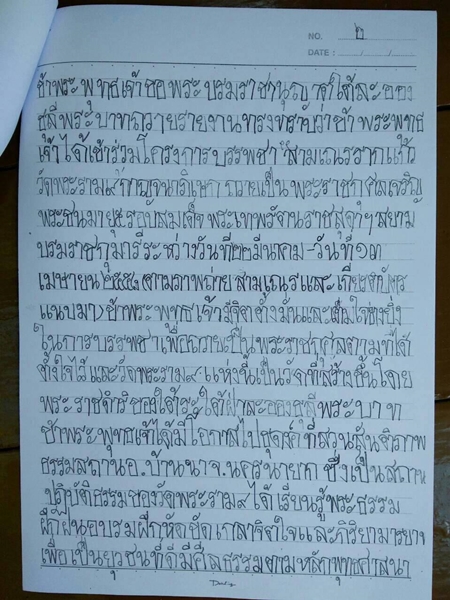 NO. ๒
DATE : / /
ข้าพระพุทธเจ้าขอพระบรมราชานุญาตใต้ละออง
ธุลีพระบาทถวายรายงานทรงทราบว่าข้าพระพุทธ
เจ้าได้เข้าร่วมโครงการบรรพชา สามเณรรากแก้ว
วัดพระราม๙กาญจนาภิเษก ถวายเป็นพระราชกุศลเจริญ
พระชนมายุ๕รอบสมเด็จพระเทพรัตนราชสุดาฯสยาม
บรมราชกุมารีระหว่างวันที่๒๒มีนาคม-วันที่๑๓
เมษายน๒๕๕๘ตามภาพถ่ายสามเณรและเกียรติบัตร
แนบมาข้าพระพุทธเจ้ารู้จิตตั้งมั่นและเต็มใจอย่างยิ่ง
ในการบรรพชาเพื่อถวายเป็นพระราชกุศลตามที่ได้
ตั้งใจไว้และวัดพระราม๙แห่งนี้เป็นวัดที่สร้างขึ้นโดย
พระราชดำริของใต้ระใต้ฝ่าละอองธุลีพระบาท
ข้าพระพุทธเจ้าได้มีโอกาสไปธุดงค์ที่สวนสันติภาพ
ธรรมสถานอ.บ้านนาจ.นครนายก ซึ่งเป็นสถาน
ปฏิบัติธรรมของวัดพระราม๙ได้เรียนรู้พระธรรม
ฝึกฝนอบรมฝึกหัดขัดเกลาจิตใจและกิริยามารยาท
เพื่อเป็นยุวชนที่ดีมีศีลธรรมตามหลักพุทธศาสนา